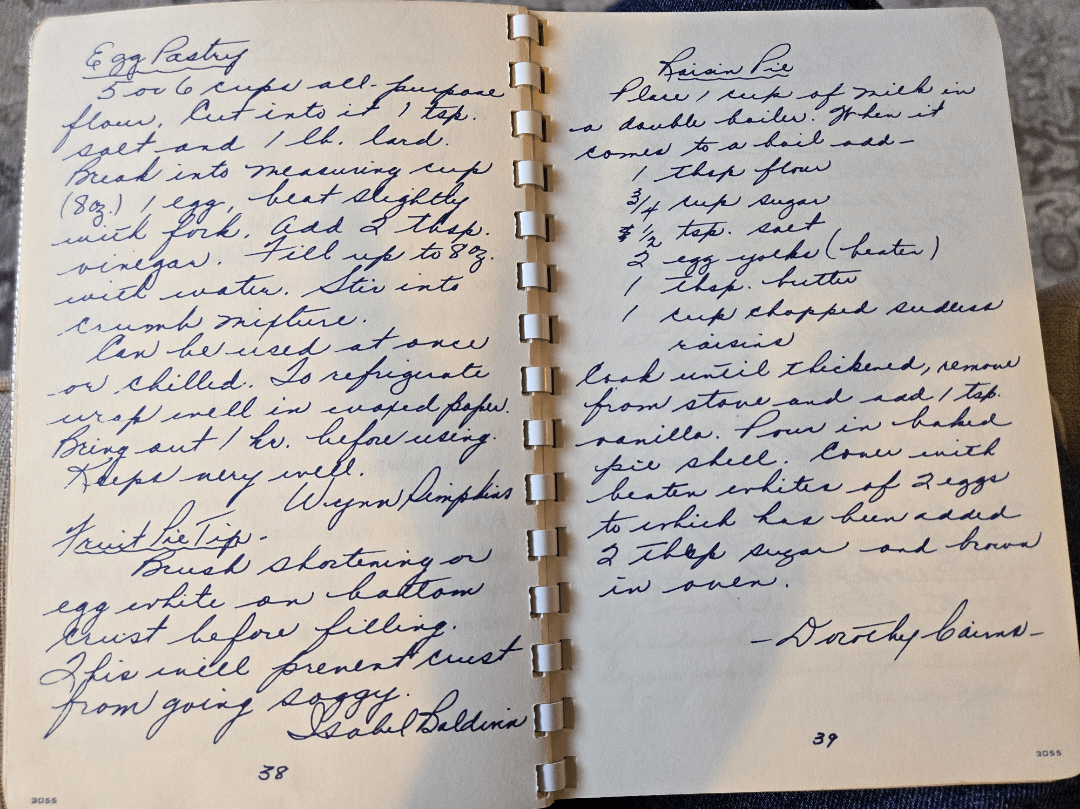 Egg Pastry
5 or 6 cups all-purpose
flour. Cut into it 1 tsp.
salt and 1 lb. lard.
Break into measuring cup
(8oz.) 1 egg, beat slightly
with fork. Add 2 tbsp.
vinegar. Fill up to 8oz.
with water. Stir into
crumb mixture.
Can be used at once
or chilled. To refrigerate
wrap well in waxed paper.
Bring out 1 hr. before using.
Keeps very well.
Wynn Simpkins
Fruit Pie Tip-
Brush shortening or
egg white on bottom
crust before filling.
This will prevent crust
from going soggy.
Isabel Baldwin
38
3055
Raisin Pie
Place 1 cup of milk in
a double boiler. When it
comes to a boil add-
1 tbsp flour
3/4 cup sugar
1/2 tsp. salt
2 egg yolks (beaten)
1 tbsp. butter
1 cup chopped seedless
raisins
Cook until thickened, remove
from stove and add 1 tsp.
vanilla. Pour in baked
pie shell. Cover with
beaten whites of 2 eggs
to which has been added
2 tbsp sugar and brown
in oven.
-Dorothy Cairns-
39
3055